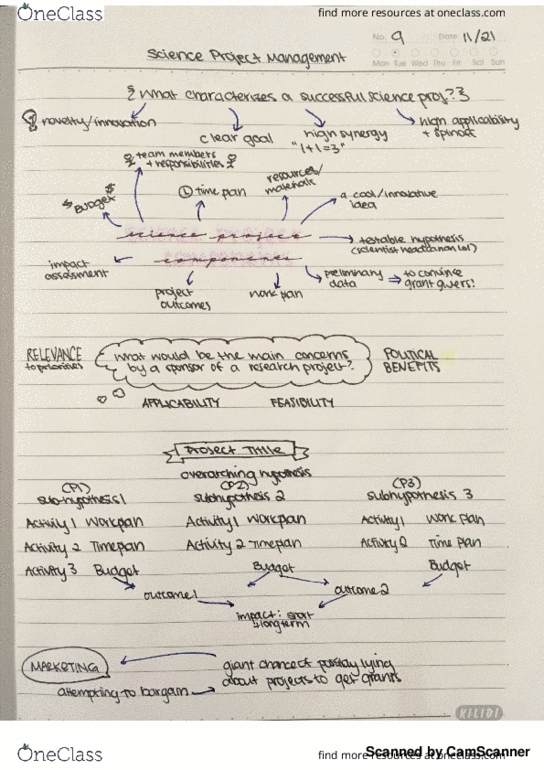 OneClass
find more resources at oneclass.com
No. 9 Date 11/21
Mon Tue Wed Thu Fri Sat Sun
Science Project Management
What characterizes a successful science proj?
novelty/innovation
clear goal
high synergy
"1+1=3"
high applicability
+ spinoff
team members
+ responsibilities
$ Budget $
time plan
resources/
materials
a cool/innovative
idea
science project
components
testable hypothesis
(scientist
lol)
impact
assessment
project
outcomes
work plan
preliminary
data
to convince
grant givers!
RELEVANCE
to priorities
What would be the main concerns
by a sponsor of a research project?
POLITICAL
BENEFITS
APPLICABILITY FEASIBILITY
Project Title
overarching hypothesis
(P1) (P2) (P3)
sub-hypothesis 1 subhypothesis 2 subhypothesis 3
Activity 1 Workplan Activity 1 Workplan Activity 1 Work Plan
Activity 2 Timeplan Activity 2 Timeplan Activity 2 Time Plan
Activity 3 Budget Budget Budget
outcome 1 outcome 2
impact: short
& long term
MARKETING
giant chance of
lying
about projects to get grants
attempting to bargain
KILIDI
OneClass
find more resources at oneclass.com
Scanned by CamScanner